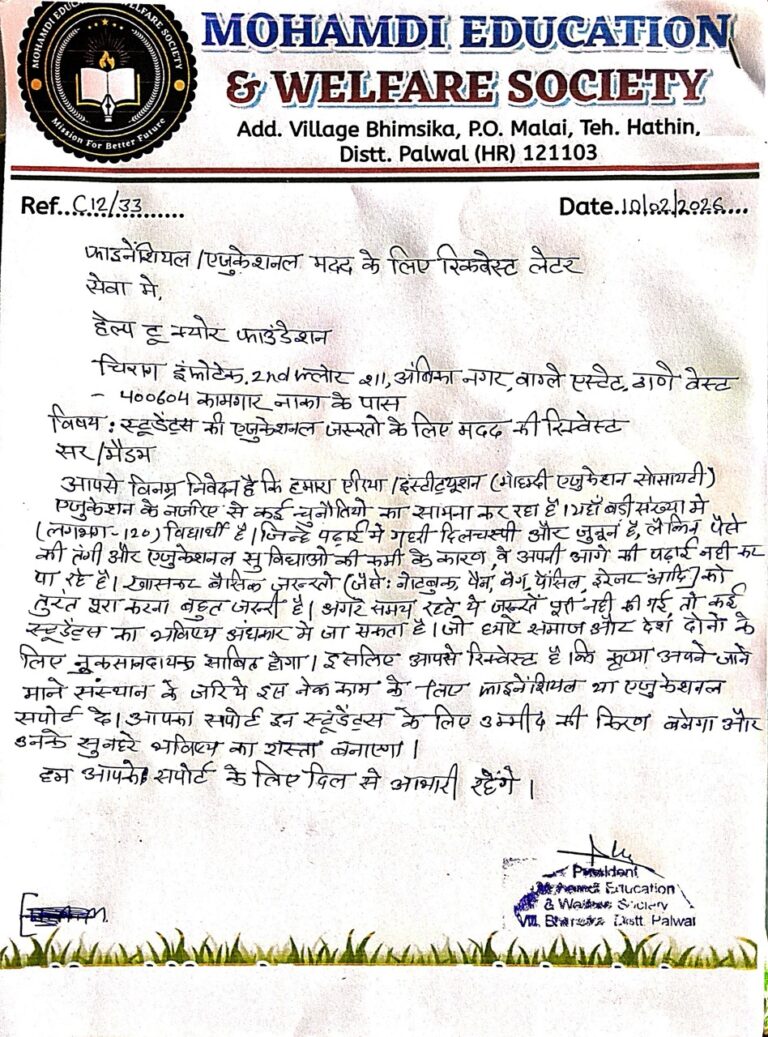 MOHAMDI EDUCATION WELFARE SOCIETY
Mission For Better Future
MOHAMDI EDUCATION
& WELFARE SOCIETY
Add. Village Bhimsika, P.O. Malai, Teh. Hathin,
Distt. Palwal (HR) 121103
Ref..C12/33.......
Date.10/02/2026...
फाइनेंशियल/एजुकेशनल मदद के लिए रिक्वेस्ट लेटर
सेवा मे,
हेल्प टू क्योर फाउंडेशन
चिराग इंफोटेक, 2nd फ्लोर, अंबिका नगर, वाग्ले एस्टेट, ठाणे वेस्ट
- 400604 कामगार नाका के पास
विषय : स्टूडेंट्स की एजुकेशनल जरूरतो के लिए मदद की रिक्वेस्ट
सर/मैडम
आपसे विनम्र निवेदन है कि हमारा एरिया/इंस्टीट्यूशन (मोहम्दी एजुकेशन सोसायटी)
एजुकेशन के नजरिए से कई चुनौतियो का सामना कर रहा है। यहाँ बडी संख्या मे
(लगभग-120) विद्यार्थी है। जिन्हे पढ़ाई मे गहरी दिलचस्पी और जुनून है, लेकिन पैसे
की तंगी और एजुकेशनल सुविधाओ की कमी के कारण, वे अपनी आगे की पढ़ाई नही कर
पा रहे है। खासकर बेसिक जरूरतो (जैसे: नोटबुक, पैन, बैग, पेंसिल, इरेजर आदि) को
तुरंत पूरा करना बहुत जरूरी है। अगर समय रहते ये जरूरतें पूरी नही की गई, तो कई
स्टूडेंट्स का भविष्य अंधकार मे जा सकता है। जो समाज और देश दोनो के
लिए नुकसानदायक साबित होगा। इसलिए आपसे रिक्वेस्ट है। कि कृप्या अपने जाने
माने संस्थान के जरिये इस नेक काम के लिए फाइनेंशियल या एजुकेशनल
सपोर्ट दे। आपका सपोर्ट इन स्टूडेंट्स के लिए उम्मीद की किरण बनेगा और
उनके सुनहरे भविष्य का रास्ता बनाएगा।
हम आपके सपोर्ट के लिए दिल से आभारी रहेंगे।
President
Mohamdi Education
& Welfare Society
Vill. Bhimsika Distt. Palwal